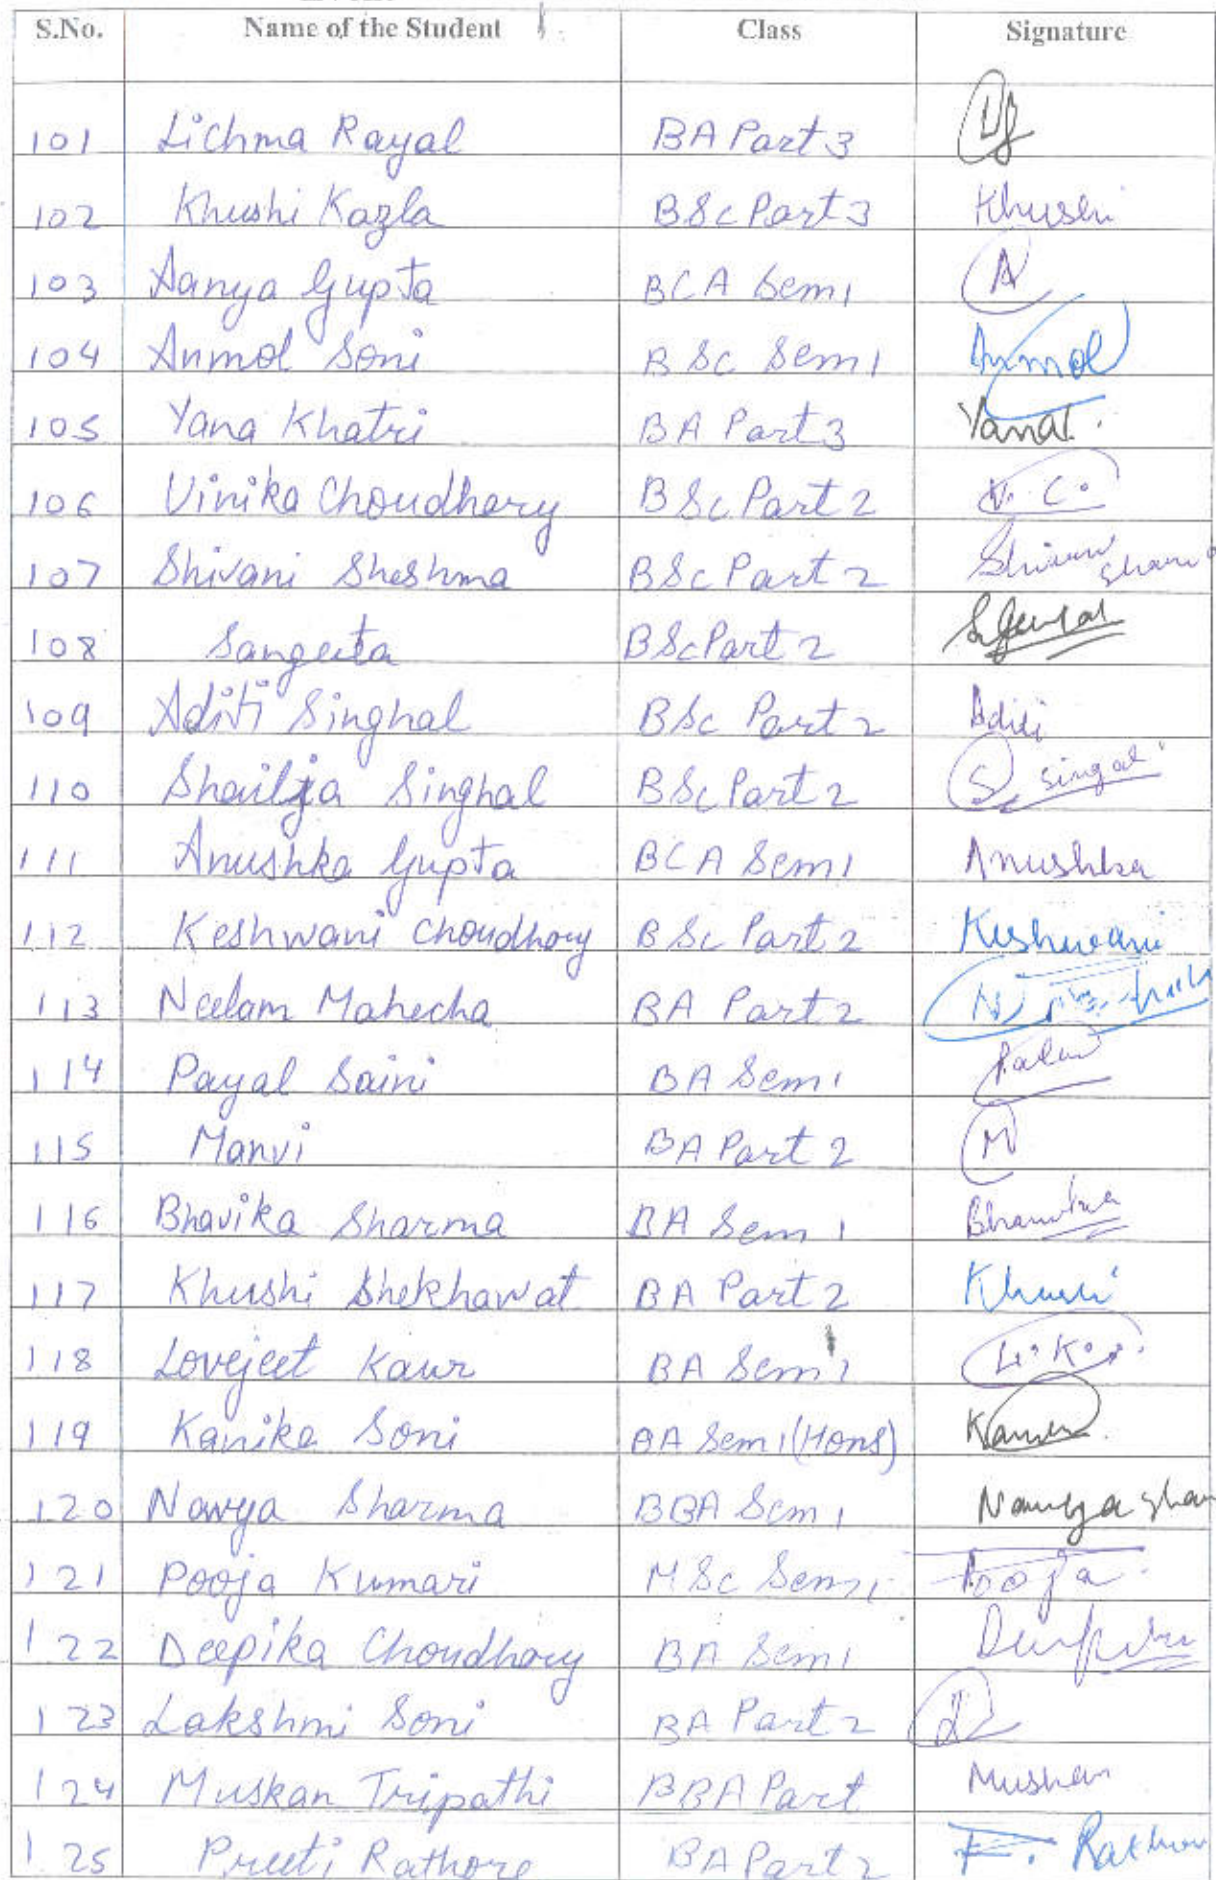 S.No. Name of the Student Class Signature
101 Lichma Rayal BA Part 3
102 Khushi Kazla BSc Part 3 Khushi
103 Aanya Gupta BCA Sem 1 A
104 Anmol Soni BSc Sem 1 Anmol
105 Yana Khatri BA Part 3
106 Vinika Choudhary BSc Part 2 V. C.
107 Shivani Sheshma BSc Part 2
108 Sangeeta BSc Part 2
109 Aditi Singhal BSc Part 2 Aditi
110 Shailja Singhal BSc Part 2 S. Singal
111 Anushka Gupta BCA Sem 1 Anushka
112 Keshwani Choudhary BSc Part 2 Keshwani
113 Neelam Mahecha BA Part 2
114 Payal Saini BA Sem 1
115 Manvi BA Part 2 M
116 Bhavika Sharma BA Sem 1
117 Khushi Shekhawat BA Part 2
118 Lovejeet Kaur BA Sem 1
119 Kanika Soni BA Sem 1 (Hons)
120 Navya Sharma BBA Sem 1
121 Pooja Kumari MSc Sem 1 Pooja
122 Deepika Choudhary BA Sem 1
123 Lakshmi Soni BA Part 2
124 Muskan Tripathi BBA Part Muskan
125 Preeti Rathore BA Part 2